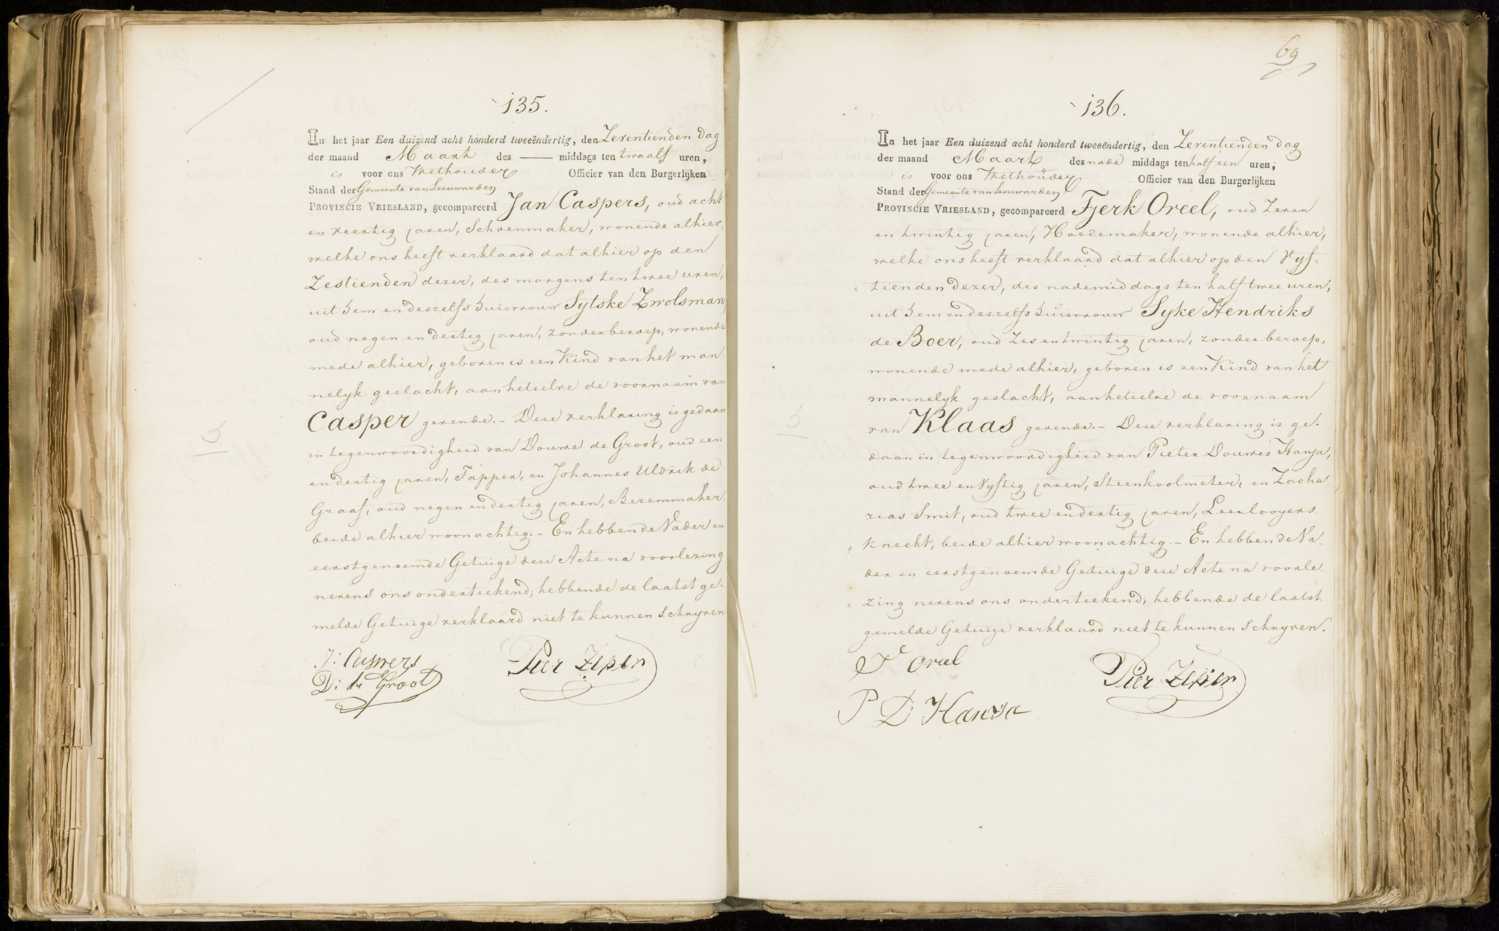 135.
In het jaar Een duizend acht honderd tweeëndertig, den Zeventienden dag
der maand Maart des —— middags ten twaalf uren,
is voor ons Wethouder Officier van den Burgerlijken
Stand der Gemeente van Leeuwarden
PROVINCIE VRIESLAND, gecompareerd Jan Caspers, oud acht
en veertig jaren, Schoenmaker, wonende alhier,
welke ons heeft verklaard dat alhier op den
Zestienden dezer, des morgens ten twee uren,
uit hem en deszelfs huisvrouw Sytske Zwolsman
oud negen en dertig jaren, zonder beroep, wonende
mede alhier, geboren is een Kind van het man
nelyk geslacht, aan hetwelke de voornaam van
Casper gevende. – Deze verklaring is gedaan
in tegenwoordigheid van Douwe de Groot, oud een
en dertig jaren, Tapper, en Johannes Uldrik de
Graaf, oud negen en dertig jaren, Beremmaker
beide alhier woonachtig. – En hebben de Vader en
eerstgenoemde Getuige deze Acte na voorlezing
nevens ons onderteekend, hebbende de laatst ge-
melde Getuige verklaard niet te kunnen schryven
J: Caspers
D: de Groot
Pier Zeper
69
136.
In het jaar Een duizend acht honderd tweeëndertig, den Zeventienden dag
der maand Maart des nade middags ten half een uren,
is voor ons Wethouder Officier van den Burgerlijken
Stand der Gemeente van Leeuwarden
PROVINCIE VRIESLAND, gecompareerd Tjerk Oreel, oud Zeven
en twintig jaren, Hoedemaker, wonende alhier,
welke ons heeft verklaard dat alhier op den Vyf-
tienden dezer, des nademiddags ten half twee uren,
uit hem en deszelfs huisvrouw Syke Hendriks
de Boer, oud Zes en twintig jaren, zonder beroep,
wonende mede alhier, geboren is een Kind van het
mannelyk geslacht, aan hetwelke de voornaam
van Klaas gevende. – Deze verklaring is ge-
daan in tegenwoordigheid van Pieter Douwes Hansa,
oud twee en Vyftig jaren, Steenkoolmeter, en Zacha
rias Smit, oud twee en dertig jaren, Leerlooyers
knecht, beide alhier woonachtig. – En hebben de Va-
der en eerstgenoemde Getuige deze Acte na voorle
zing nevens ons onderteekend, hebbende de laatst
gemelde Getuige verklaard niet te kunnen schryven.
T Oreel
P D Hansa
Pier Zeper